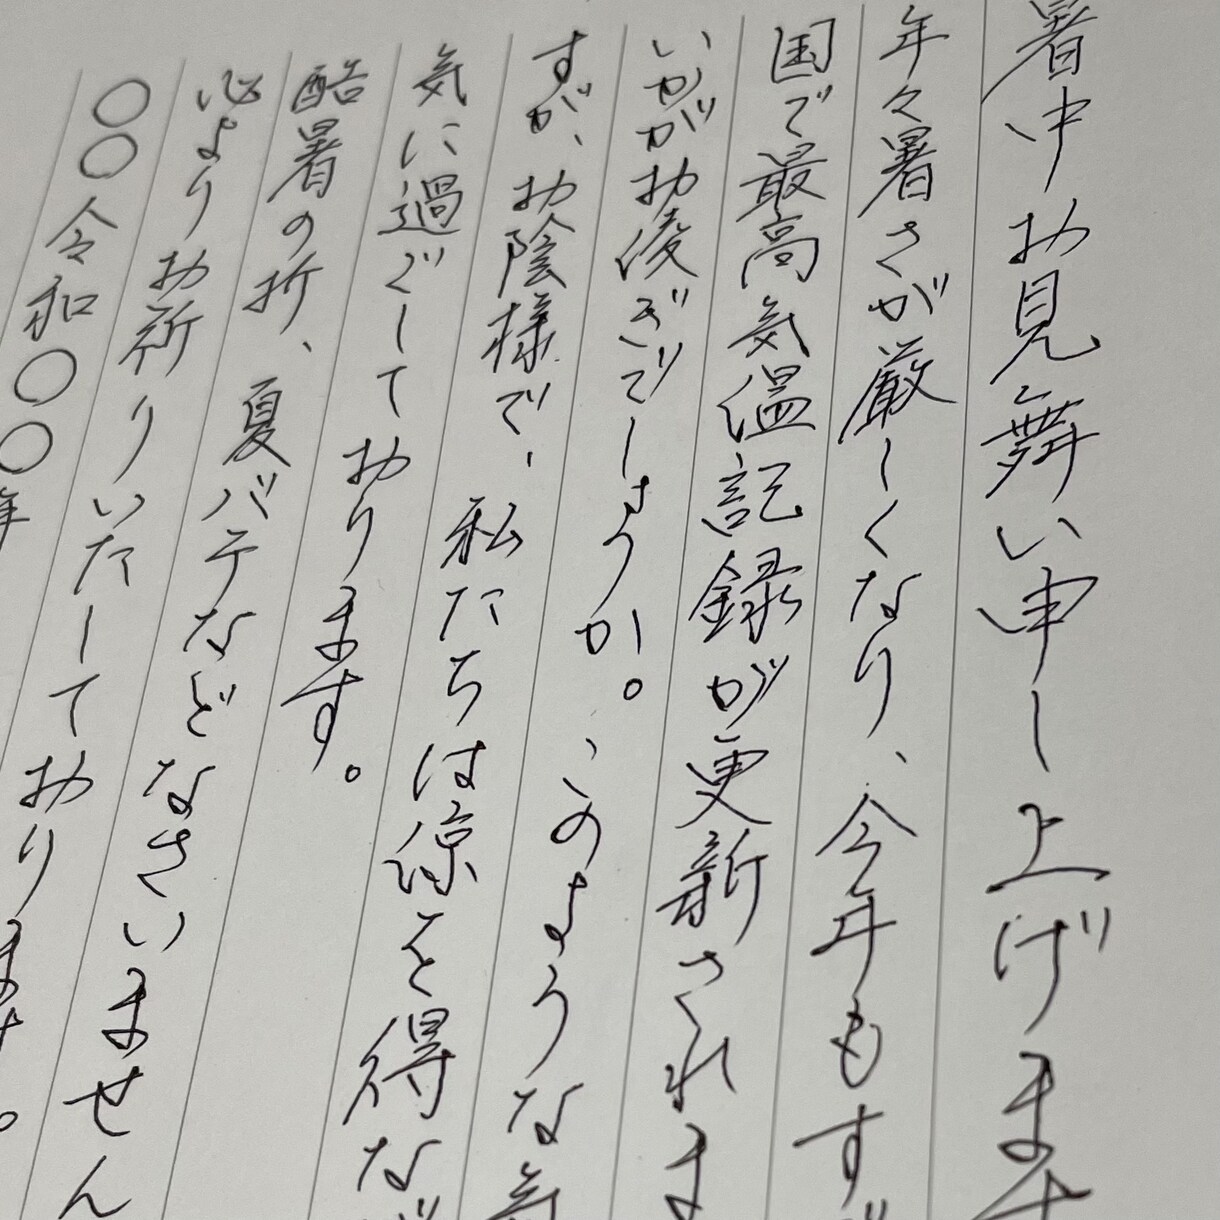 暑中お見舞い申し上げます
年々暑さが厳しくなり、今年もす
国で最高気温記録が更新されま
いかがお凌ぎでしょうか。このような気
すが、お陰様で、私たちは涼を得な
気に過ごしております。
酷暑の折、夏バテなどなさいません
心よりお祈りいたしております。
〇〇令和〇〇年